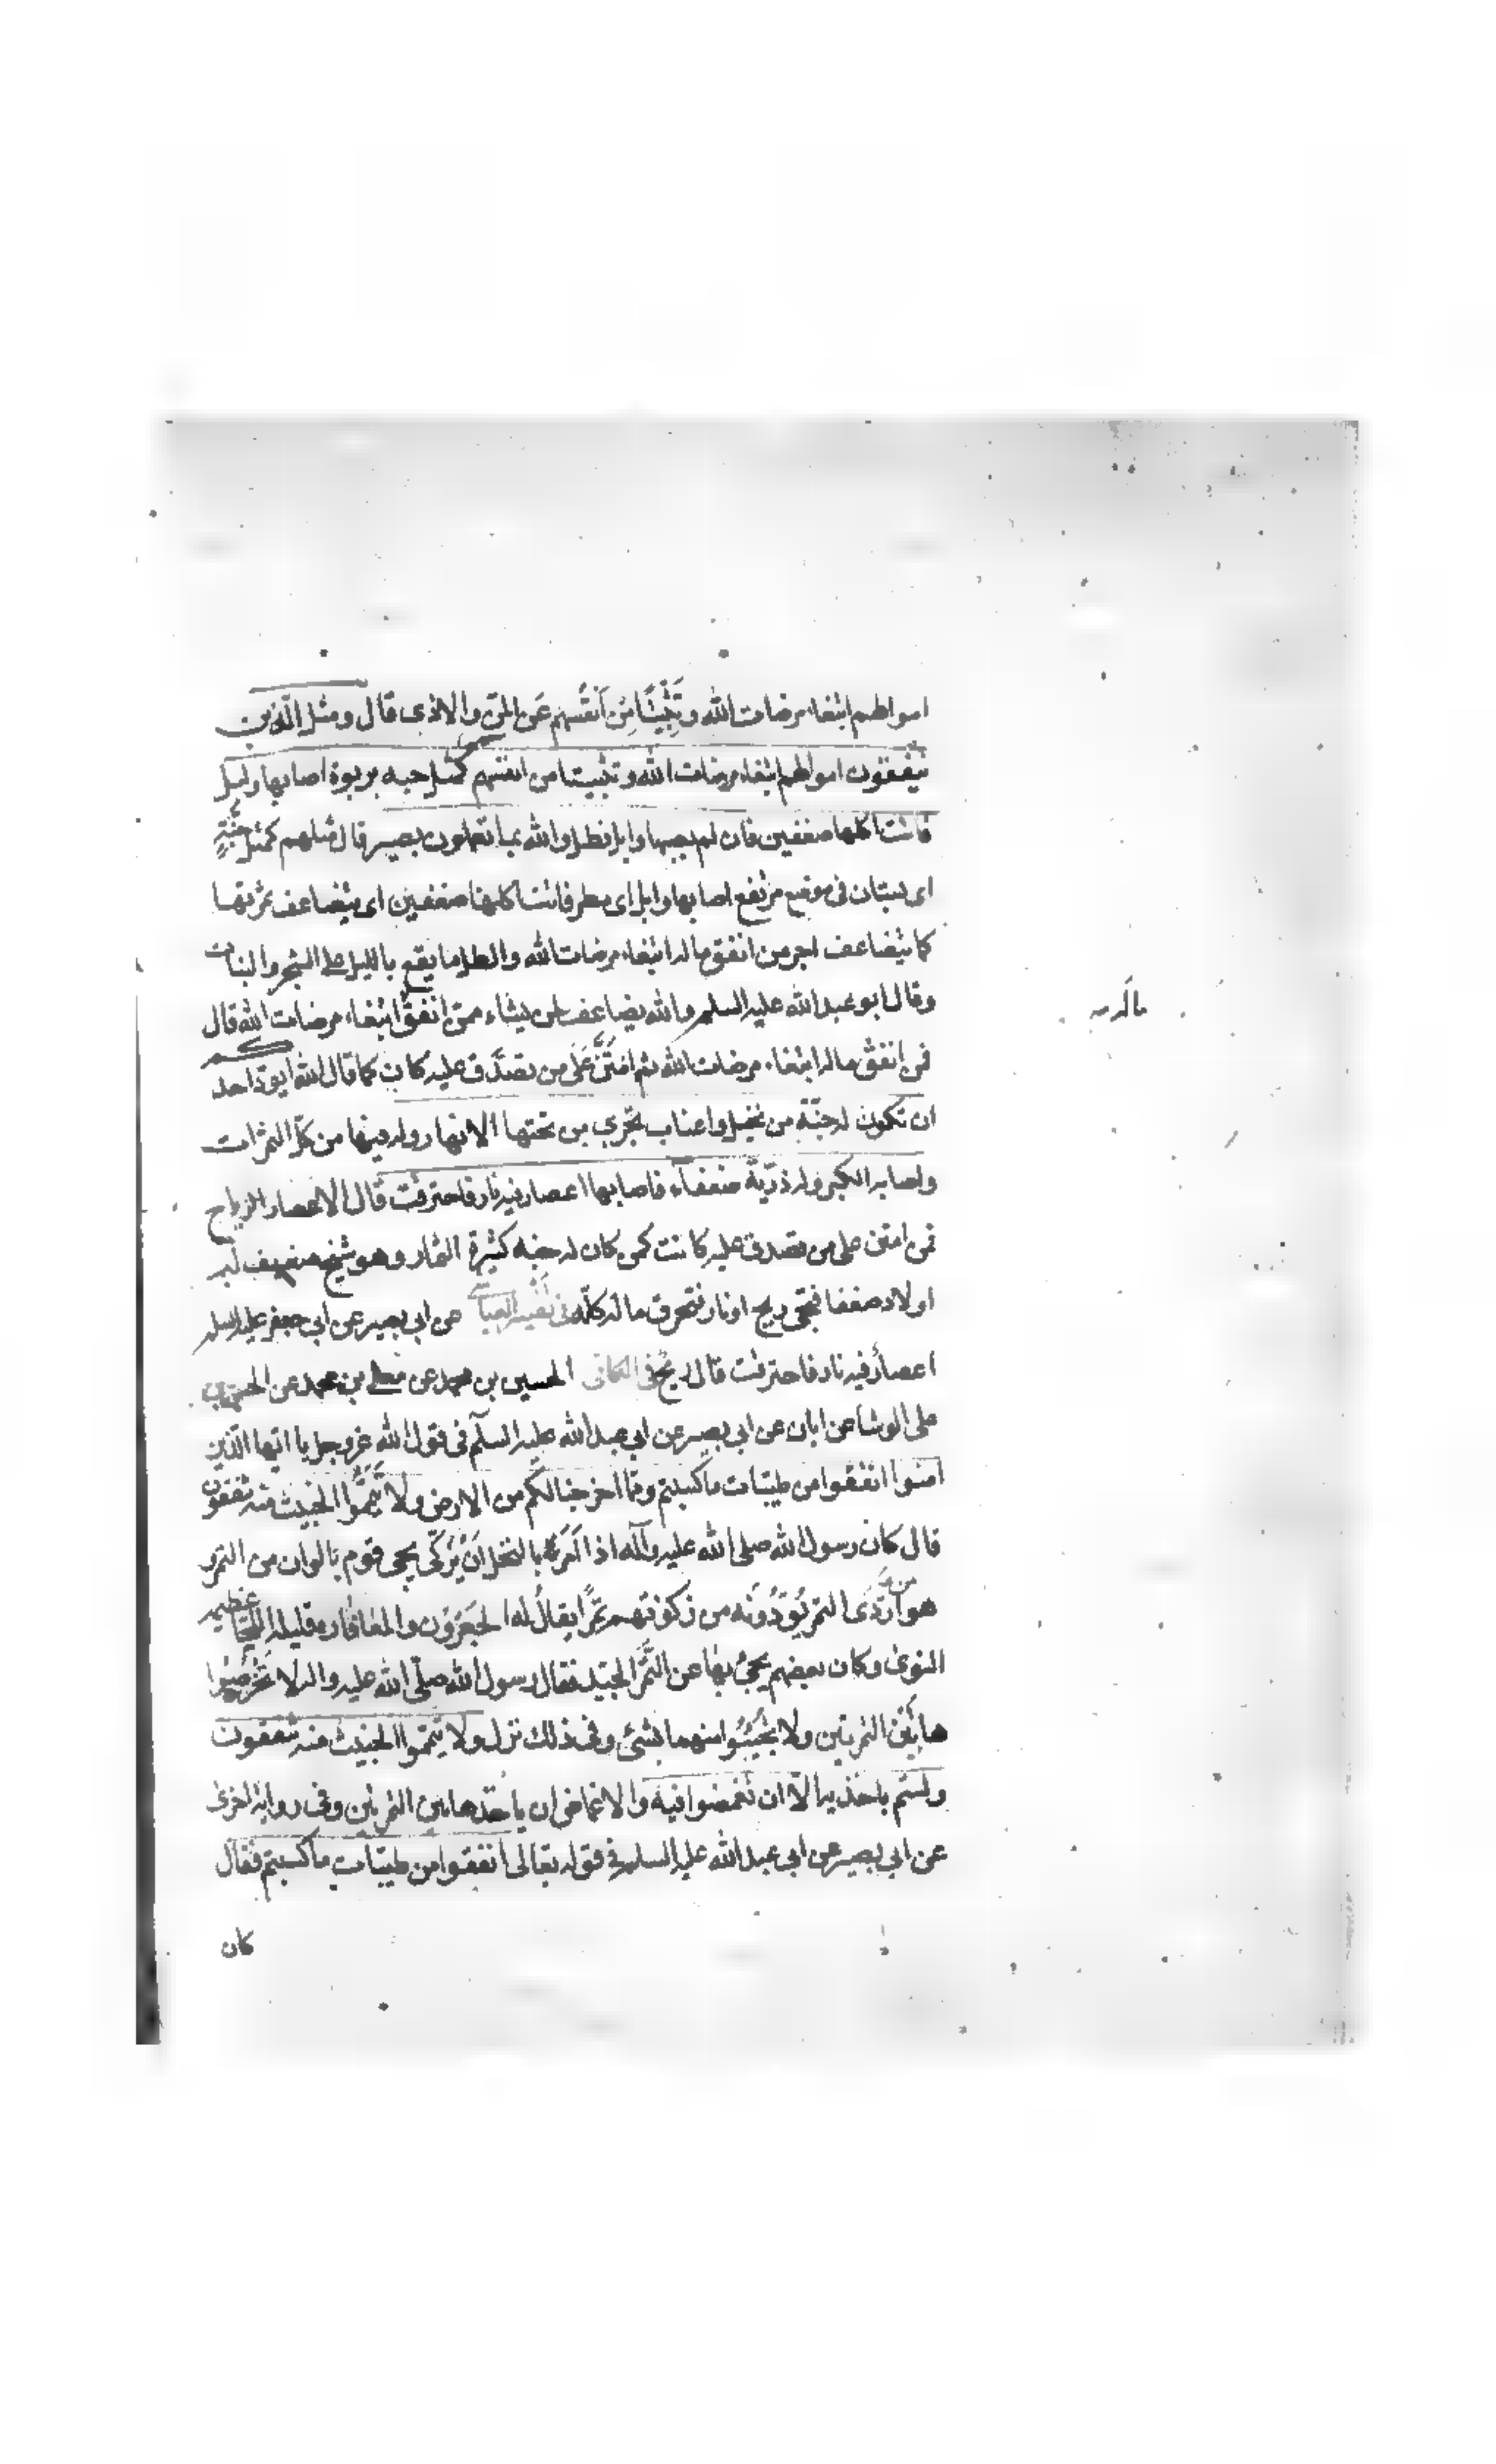 اموالهم ابتغاء مرضات الله وتَثْبِيتًا مِنْ اَنفُسِهِم عَن المنّ والاذى قال ومثل الّذين
ينفقون اموالهم ابتغاء مرضات الله وتثبيتا من انفسهم كمثل حبه بربوة اصابها وابل
فاتت اكلها ضعفين فان لم يصبها وابل فطل والله بما تعملون بصير قال مثلهم كمثل جَنَّةٍ
اى بستان فى موضع مرتفع اصابها وابل اى مطر فاتت اكلها ضعفين اى يتضاعف ثمرتها
كما يتضاعف اجر من انفق ماله ابتغاء مرضات الله والطل ما يقع بالليل على الشجر والنبات
وقال ابو عبد الله عليه السلم والله يضاعف لمن يشاء ممن انفق ابتغاء مرضات الله قال
فمن انفق ماله ابتغاء مرضات الله ثم امْتَنَّ عَلَى من تصدَّق عليه كان كما قال الله ايودّ احدكم
ان تكون له جنّة من نخيل واعناب تجرى من تحتها الانهار وله فيها من كلّ الثمرات
واصابه الكبر وله ذرّيّة ضعفاء فاصابها اعصار فيه نار فاحترقت قال الاعصار الرياح
فمن امتن على من تصدق عليه كانت كمن كان له جنه كثيرة الثمار وهو شيخ ضعيف له
اولاد ضعفا فتجى ريح او نار فتحرق ماله كلّه فى تفسير العياشى عن ابى بصير عن ابى جعفر عليه السلم
اعصار فيه نار فاحترقت قال ريح فى الكافى الحسين بن محمد عن معلى بن محمد عن الحسن بن
على الوشا عن ابان عن ابى بصير عن ابى عبد الله عليه السلم فى قول الله عز وجل يا ايها الّذين
امنوا انفقوا من طيّبات ما كسبتم وممّا اخرجنا لكم من الارض ولا تَيَمَّموا الخبيث منه تنفقون
قال كان رسول الله صلى الله عليه وآله اذا اَمَرَ بالنخل اَنْ يُزَكّى يجى قوم بالوان من التمر و
هو من اَرْدَى التمر يُؤَدُّونَه من زكوتهم تمرًا يقالُ له الجَعْرُوُر والمعافاره قليله اللّحا عظيمه
النوى وكان بعضهم يجئ بها عن التَّمْر الجيّد فقال رسول الله صلّى الله عليه واله لا تَخْرُصُوا
هاتَيْن التمرتين ولا تجيئُوا منهما بشئ وفى ذلك نزل ولا تيمّموا الخبيث منه تنفقون
ولستم باخذيه الّا ان تغمضوا فيه والاغماض ان ياخذ هاتين التمرتين وفى رواية اخرى
عن ابى بصير عن ابى عبد الله عليه السلم فى قوله تعالى انفقوا من طيّبات ما كسبتم فقال
كان